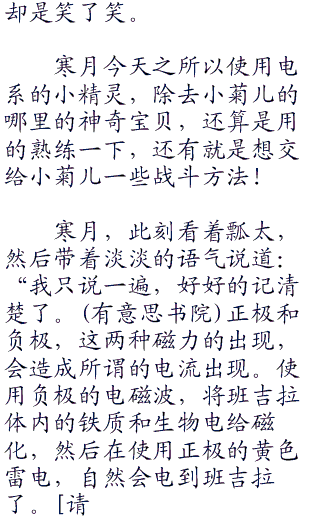 却是笑了笑。
寒月今天之所以使用电
系的小精灵，除去小菊儿的
哪里的神奇宝贝，还算是用
的熟练一下，还有就是想交
给小菊儿一些战斗方法！
寒月，此刻看着瓢太，
然后带着淡淡的语气说道：
“我只说一遍，好好的记清
楚了。(有意思书院)正极和
负极，这两种磁力的出现，
会造成所谓的电流出现。使
用负极的电磁波，将班吉拉
体内的铁质和生物电给磁
化，然后在使用正极的黄色
雷电，自然会电到班吉拉
了。[请